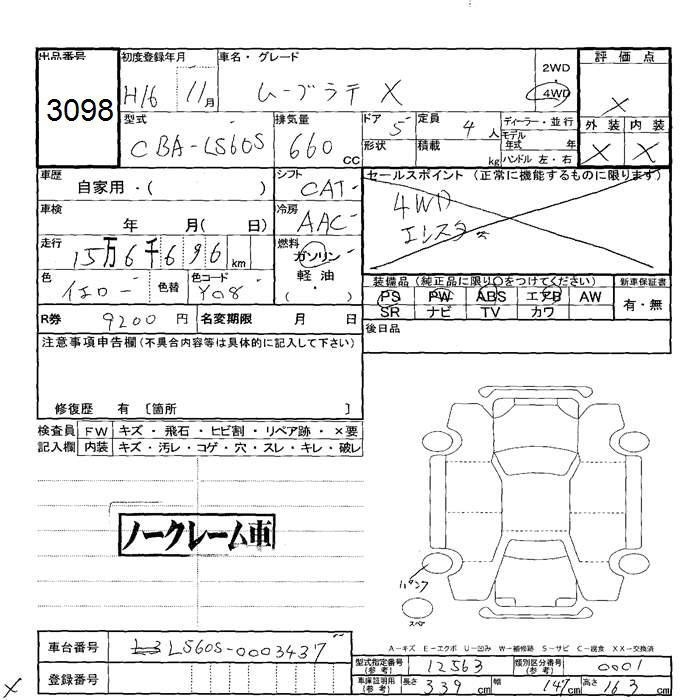 出品番号 初度登録年月 車名・グレード 2WD・ 評価点
3098 H16 11月 ムーブラテ X 4WD X
型式 排気量 ドア 定員 ディーラー・並行 外装 内装
CBA-L560S 660 cc 5 4人 モデル年式 年 X X
形状 積載 kg ハンドル 左・右
車歴 シフト セールスポイント (正常に機能するものに限ります)
自家用・( ) CAT
車検 冷房 4WD
年 月( 日) AAC
走行 燃料
15万6千696km ガソリン
色 色替 色コード 軽油 装備品 (純正品に限り○をつけてください) 新車保証書
イエロー Y08 ・( ) PS PW ABS エアB AW 有・無
R券 9200円 名変期限 月 日 SR ナビ TV カワ
注意事項申告欄(不具合内容等は具体的に記入して下さい) 後日品
修復歴 有 [箇所 ]
検査員 FW キズ・飛石・ヒビ割・リペア跡・×要
記入欄 内装 キズ・汚レ・コゲ・穴・スレ・キレ・破レ
ノークレーム車
パンク
スペア
A-キズ E-エクボ U-凹み W-補修跡 S-サビ C-腐食 XX-交換済
車台番号 L560S-0003437
型式指定番号(参考) 12563 類別区分番号(参考) 0001
登録番号
車庫証明用(参考) 長さ 339cm 幅 147cm 高さ 163cm
X